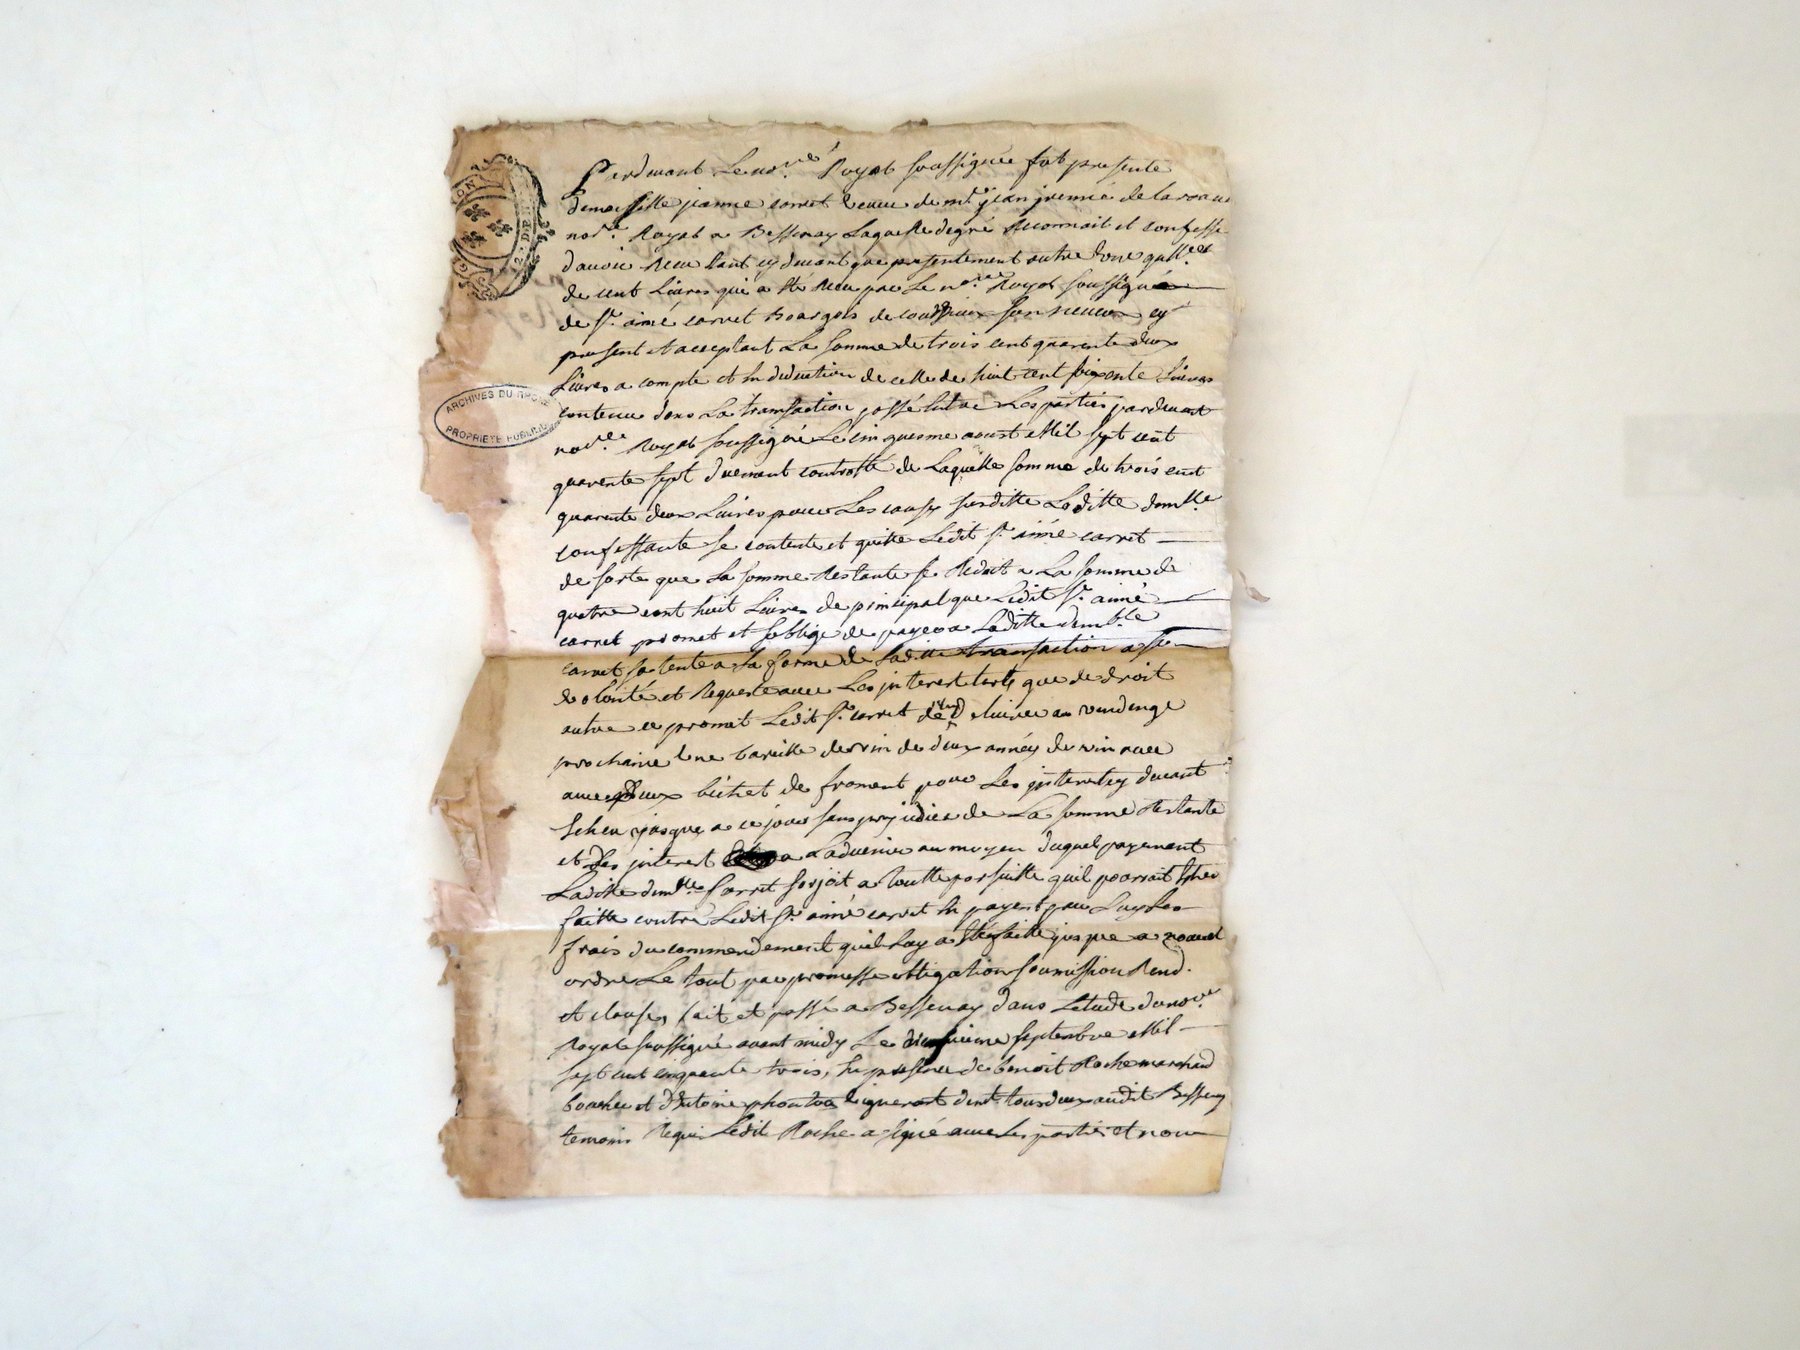 ON
2. DEN
ARCHIVES DU RHONE
PROPRIETE PUBLIQUE
Pardevant Le no.re Royal soussigné fut presente
demoiselle jeanne carret veuve de m.re jean
no.re Royal a Bessenay Laquelle de gré Reconnoit et confesse
d'avoir Reçu tant cy devant que presentement outre
de cent Livres qui a été Reçu par Le no.re Royal soussigné
de s.r aimé carret Bourgois de son neveu cy
present et acceptant La somme de trois cent quarente deux
Livres a compte et en deduction de celle de huit cent Livres
contenu dans La transaction passé entre Les parties pardevant
no.re Royal soussigné Le cinquieme aoust Mil sept cent
quarente sept duement controllé de Laquelle somme de trois cent
quarente deux Livres pour Les causes susditte Laditte dem.lle
confessante se contente et quitte Ledit s.r aimé carret
de sorte que La somme Restante se Reduit a La somme de
quatre cent huit Livres de principal que Ledit s.r aimé
carret promet et s'oblige de payer a Laditte dem.lle
carret sa tente a La forme de Laditte transaction a sa
volonté et Requeste avec Les interest tels que de droit
outre ce promet Ledit s.r carret de Livrer au vendenge
prochaine une bareille de vin de deux années de vin avec
avec deux bichet de froment pour Les interestz dueant
Echeu jusques a ce jour sans prejudice de La somme Restante
et des interest a Ladvenir au moyen duquel payement
Laditte dem.lle Carret a toutte poursuitte quil pourroit
faitte contre Ledit s.r aimé carret en payent par Luy Les
frais du commendement quil Luy a faitte jusque a nouvel
ordre Le tout par promesse obligation soumission Rend.
et clauses, fait et passé a Bessenay dans L'etude du no.re
Royal soussigné avant midy Le septembre Mil
sept cent cinquente trois, En presence de benoit Roche marchand
boucher et d'Antoine vigneront dem.t tous deux audit Bessenay
temoins Requis Ledit Roche a signé avec Les parties et non